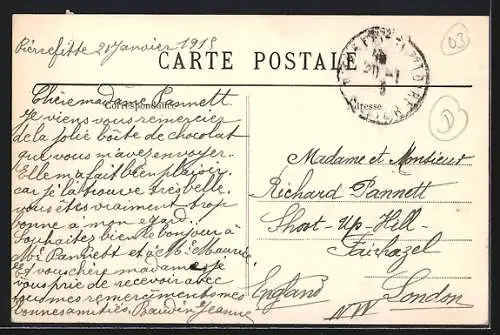 Pierrefitte 20 Janvier 1915
CARTE POSTALE
Correspondance
Adresse
Chère madame Pannett
Je viens vous remercier
de la jolie boîte de chocolat
que vous m'avez envoyer.
Elle m'a fait bien plaisir
car je la trouve très belle.
vous êtes vraiment trop
bonne a mon égard.
Souhaites bien le bonjour à
Mr Pannett et à Mr Maurice
Et vous chère madame je
vous prie de recevoir avec
tous mes remerciements mes
bonnes amitiés. Jeanne
Madame et Monsieur
Richard Pannett
Shoot-Up-Hill-
Fairhazel
London
England
NW
03
D